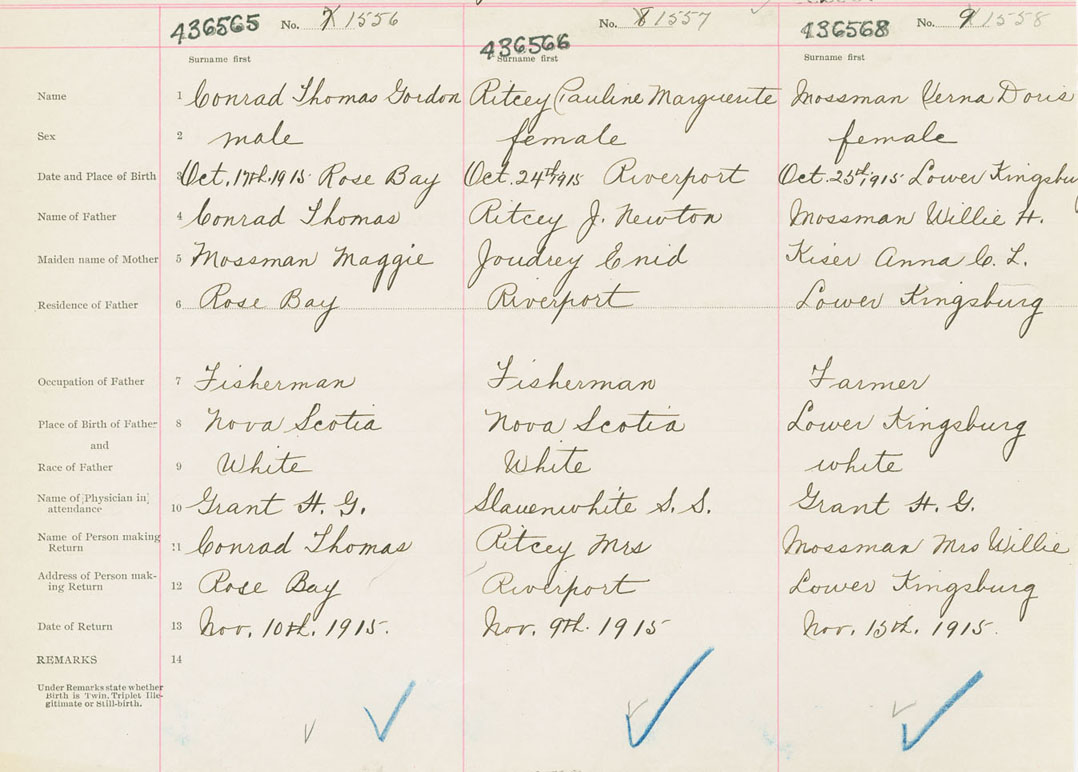 436565 No. 7 1556 436566 No. 8 1557 436568 No. 9 1558
Surname first Surname first Surname first
Name 1 Conrad Thomas Gordon Ritcey Pauline Marguerite Mossman Verna Doris
Sex 2 male female female
Date and Place of Birth 3 Oct. 17th. 1915 Rose Bay Oct. 24th 1915 Riverport Oct. 25th, 1915 Lower Kingsburg
Name of Father 4 Conrad Thomas Ritcey J. Newton Mossman Willie H.
Maiden name of Mother 5 Mossman Maggie Joudrey Enid Kiser Anna C. L.
Residence of Father 6 Rose Bay Riverport Lower Kingsburg
Occupation of Father 7 Fisherman Fisherman Farmer
Place of Birth of Father 8 Nova Scotia Nova Scotia Lower Kingsburg
and
Race of Father 9 White White white
Name of Physician in
attendance 10 Grant H. G. Slauenwhite S. S. Grant H. G.
Name of Person making
Return 11 Conrad Thomas Ritcey Mrs Mossman Mrs Willie
Address of Person mak-
ing Return 12 Rose Bay Riverport Lower Kingsburg
Date of Return 13 Nov. 10th. 1915. Nov. 9th. 1915 Nov. 15th. 1915.
REMARKS 14
Under Remarks state whether
Birth is Twin, Triplet Ille-
gitimate or Still-birth.